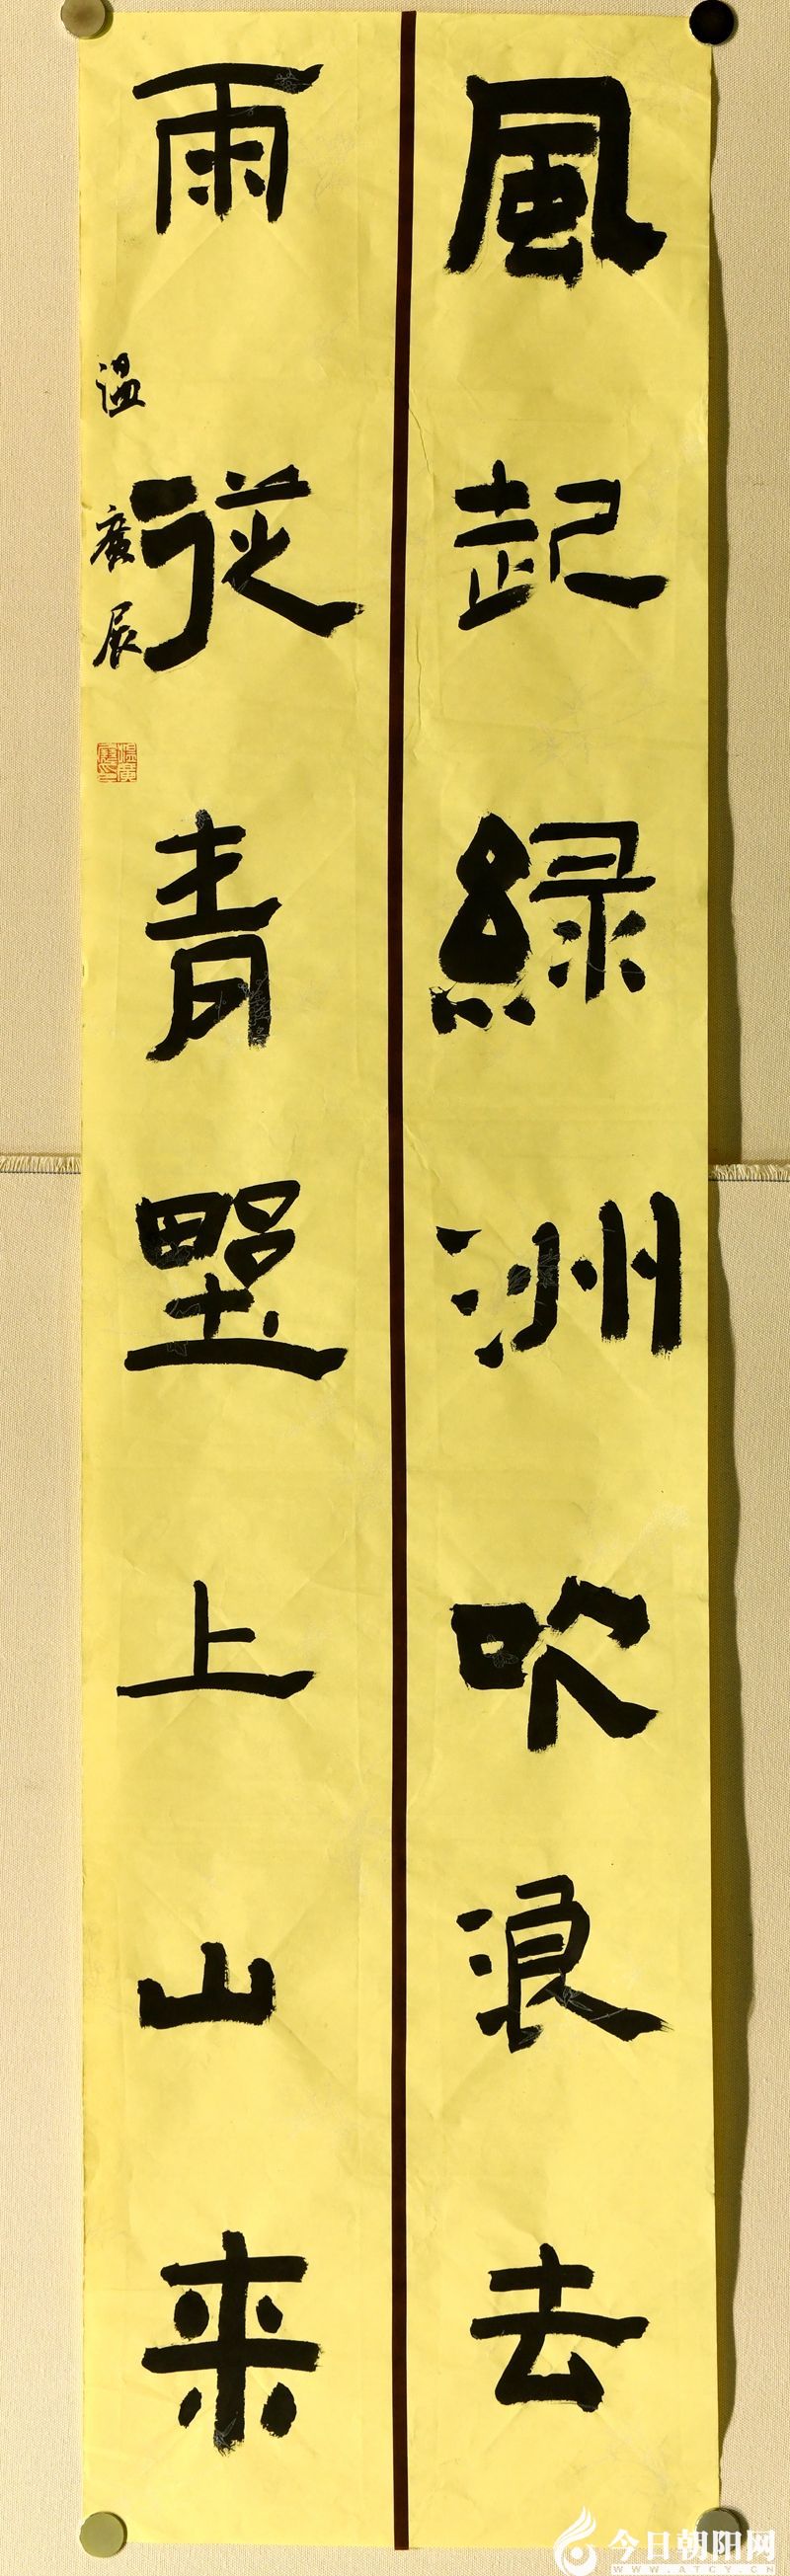 風起緑洲吹浪去
雨従青墅上山来
温廣展
今日朝阳网
WWW.ATCY.CN